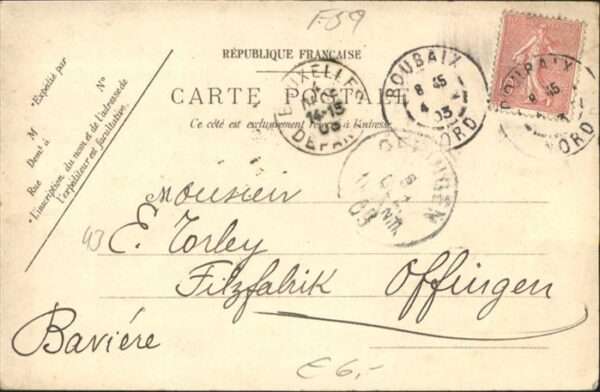 F-59
RÉPUBLIQUE FRANÇAISE
CARTE POSTALE
Ce côté est exclusivement réservé à l'adresse.
*Expédié par
M
Demt à
Rue
N°
*L'inscription du nom et de l'adresse de
l'expéditeur est facultative.
BRUXELLES
14-15
DEPART
ROUBAIX
8 45
4
03
NORD
ROUBAIX
8 45
03
NORD
Monsieur
43
E. Torley
Filzfabrik Offingen
Baviére
€ 6,-